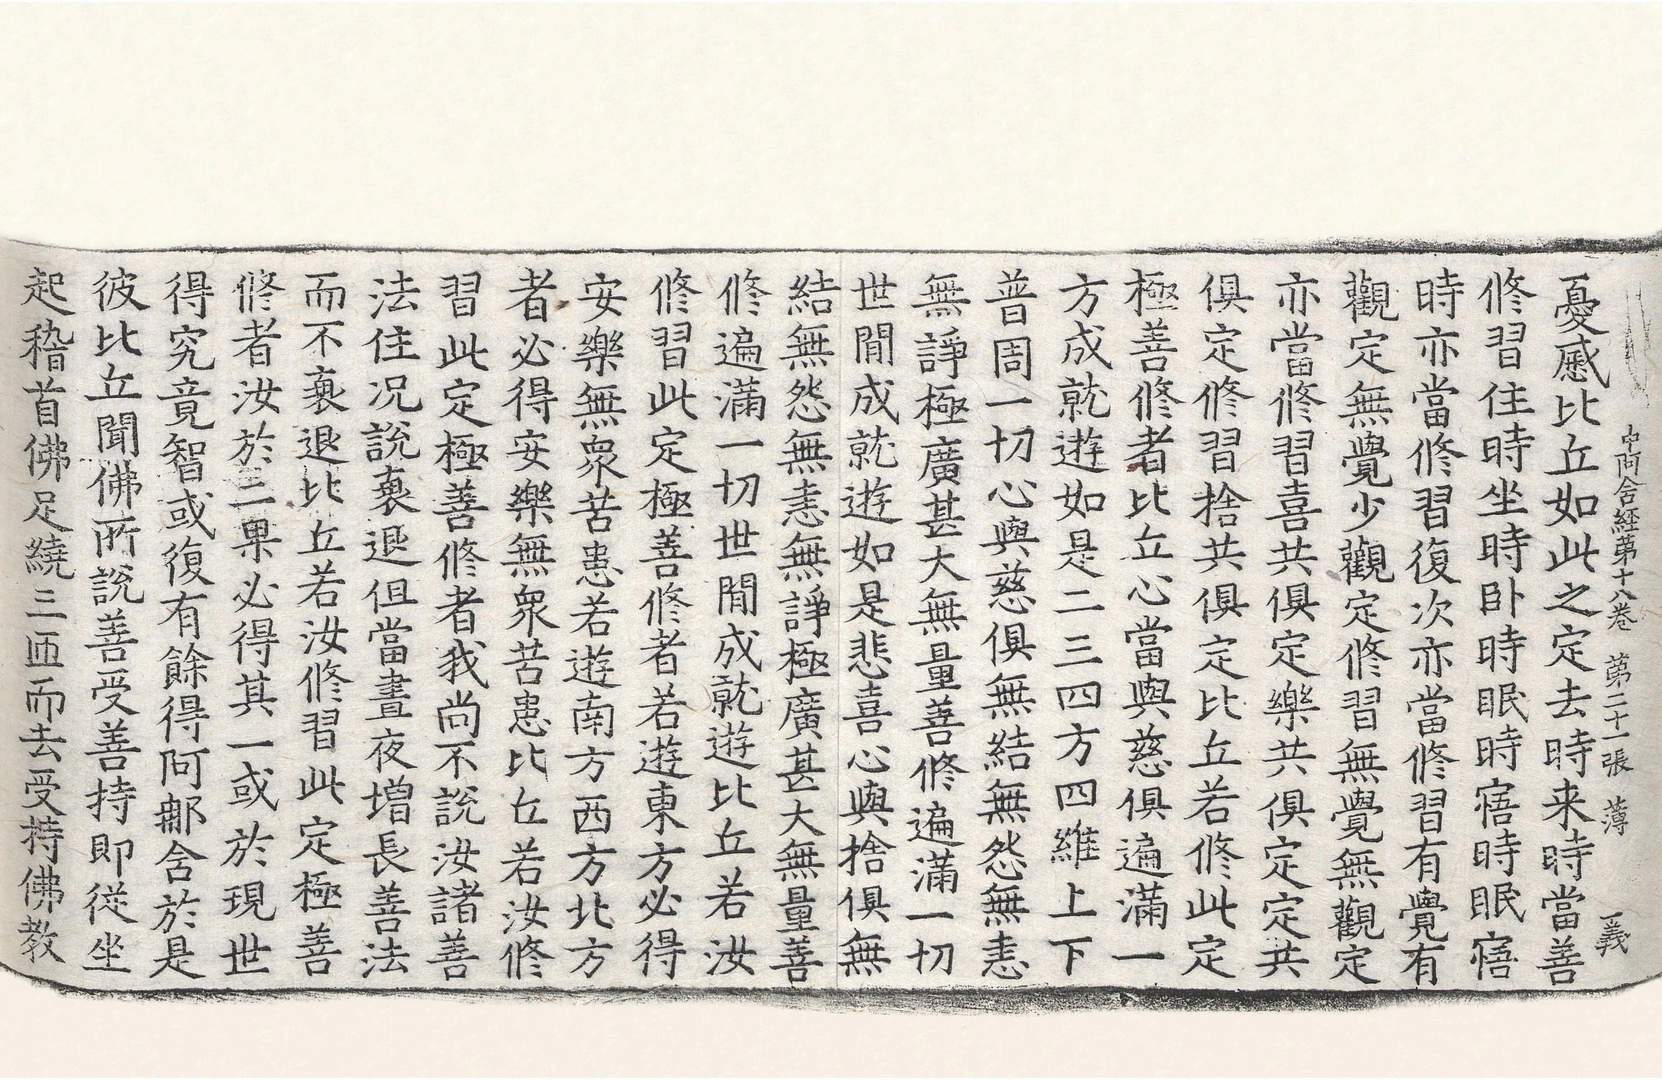 中阿含経第十八巻　第二十一張　薄　義
憂慼比丘如此之定去時来時當善
修習住時坐時卧時眠時寤時眠寤
時亦當修習復次亦當修習有覺有
觀定無覺少觀定修習無覺無觀定
亦當修習喜共俱定樂共俱定定共
俱定修習捨共俱定比丘若修此定
極善修者比丘心當與慈俱遍滿一
方成就遊如是二三四方四維上下
普周一切心與慈俱無結無怨無恚
無諍極廣甚大無量善修遍滿一切
世間成就遊如是悲喜心與捨俱無
結無怨無恚無諍極廣甚大無量善
修遍滿一切世間成就遊比丘若汝
修習此定極善修者若遊東方必得
安樂無衆苦患若遊南方西方北方
者必得安樂無衆苦患比丘若汝修
習此定極善修者我尚不說汝諸善
法住况說衰退但當晝夜增長善法
而不衰退比丘若汝修習此定極善
修者汝於二果必得其一或於現世
得究竟智或復有餘得阿那含於是
彼比丘聞佛所說善受善持即從坐
起稽首佛足繞三匝而去受持佛教